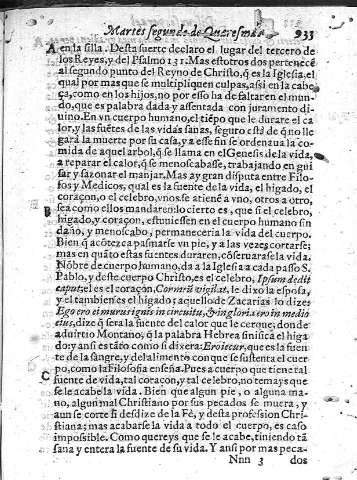 Martes segundo de Quaresma 933
A en la silla. Desta suerte declaro el lugar del tercero de
los Reyes, y del Psalmo 131. Mas estotros dos pertenecẽ
al segundo punto del Reyno de Christo, q̃ es la Iglesia. el
qual por mas que se multipliquen culpas, assi en la cabe
ça, como en los hijos, no por esso ha de faltar en el mun-
do, que es palabra dada y assentada con juramento di-
uino. En vn cuerpo humano, el tiẽpo que le durare el ca
lor, y las fuẽtes de las vidas sanas, seguro està de q̃ no lle
garà la muerte por su casa, ya esse fin se ordenaua la co-
mida de aquel arbol, q̃ se llama en el Genesis de la vida,
a reparar el calor, q̃ se menoscabasse, trabajando en gui
sar y sazonar el manjar. Mas ay gran disputa entre Filo-
sofos y Medicos, qual es la fuente de la vida, el higado, el
coraçon, o el celebro, vnos se atienẽ a vno, otros a otro,
B sea como ellos mandaren: lo cierto es, que si el celebro,
higado, y coraçon, estuuiessen en el cuerpo humano sin
daño, y menoscabo, permaneceria la vida del cuerpo.
Bien q̃ acõtezca pasmarse vn pie, y a las vezes cortarse;
mas en quãto estas fuentes duraren, cõseruarase la vida.
Nõbre de cuerpo humano, da a la Iglesia a cada passo S.
Pablo, y deste cuerpo Christo, es el celebro, Ipsum dedit
caput; el es el coraçõn, Cor meũ vigilat, le dixo la esposa,
y el tambien es el higado: aquello de Zacarias lo dize:
Ego ero ei murus ignis in circuitu, & in gloria ero in medio
eius, dize q̃ sera la fuente del calor que le cerque, donde
aduirtio Montano, q̃ la palabra Hebrea sinifica el higa
do: y ansi es tãto como si dixera: Ero iecur, que es la fuen
te de la sangre, y del alimento con que se sustenta el cuer
po, como la Filosofia enseña. Pues a cuerpo que tiene tal
C fuente de vida, tal coraçon, y tal celebro, no temays que
se le acabe la vida. Bien que algun pie, o alguna ma-
no, algun mal Christiano por sus pecados se muera, y
aun se corte si desdize de la Fè, y desta profession Chri-
stiana; mas acabarse la vida a todo el cuerpo, es caso
impossible. Como quereys que se le acabe, tiniendo tã
sana y entera la fuente de su vida. Y ansi por mas peca-
Nnn 3 dos